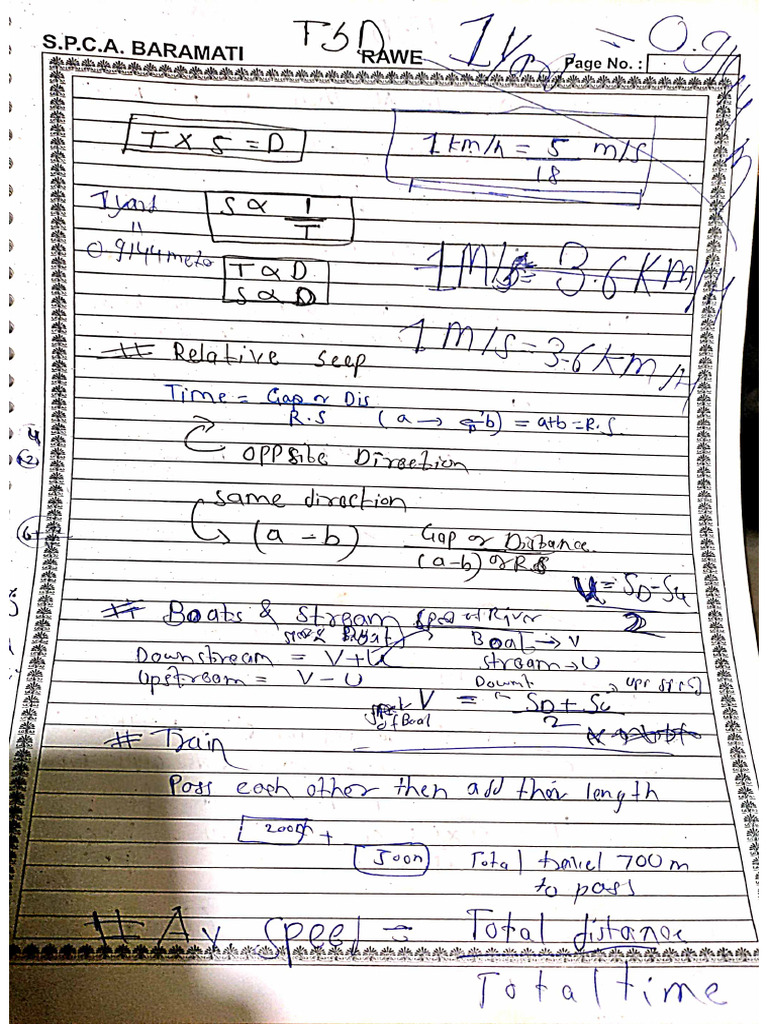 S.P.C.A. BARAMATI
TSD
RAWE
Page No. :
T × S = D
1 km/h = 5/18 m/s
1 yard
=
0.9144 meter
S ∝ 1/T
T ∝ D
S ∝ D
1M/S = 3.6 KM/H
1 M/S = 3.6 KM/H
# Relative seep
Time = Gap or Dis / R.S
(a → ← b) = a+b = R.S.
opposite Direction
same direction
(a - b)
Gap or Distance / (a-b) or R.S
U = SD - SU / 2
# Boats & Stream
speed of River
Boat → V
Downstream = V+U
stream → U
Upstream = V - U
V = SD + SU / 2
# Train
Pass each other then add their length
200m +
500m
Total travel 700 m
to pass
# Av speed = Total distance
Total time